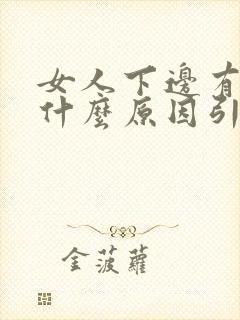 女人下邊有
什麼原因引
金菠蘿